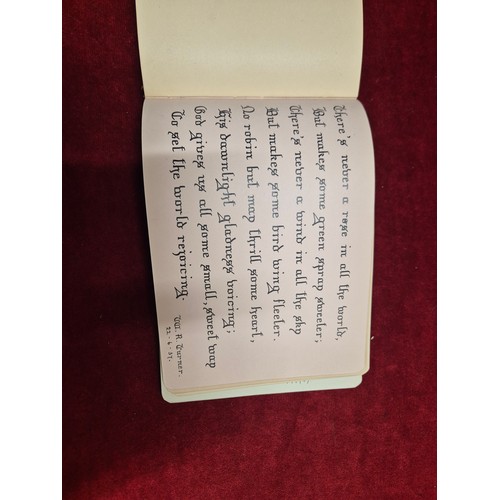 There's never a rose in all the world,
But makes some green spray sweeter;
There's never a wind in all the sky
But makes some bird wing fleeter.
No robin but may thrill some heart,
His dawnlight gladness voicing;
God gives us all some small, sweet way
To set the world rejoicing.
W. A. Turner.
22 - 4 - 37.